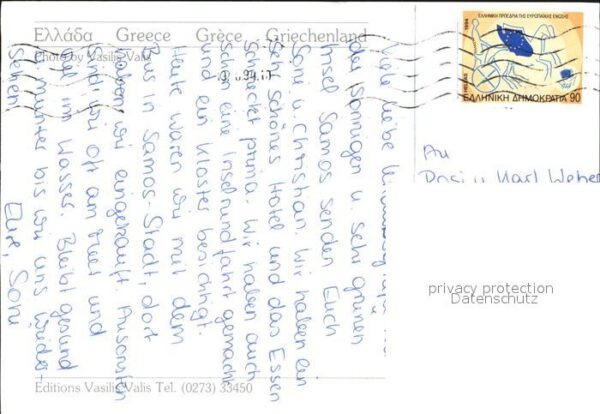 Ελλάδα Greece Grèce Griechenland
Photo by Vasilis Valis
ΕΛΛΗΝΙΚΗ ΠΡΟΕΔΡΙΑ ΤΗΣ ΕΥΡΩΠΑΪΚΗΣ ΕΝΩΣΗΣ
1994
HELLAS
ΕΛΛΗΝΙΚΗ ΔΗΜΟΚΡΑΤΙΑ 90
Viele liebe
der sonnigen u. sehr grünen
Insel Samos senden Euch
Soni u. Christian. Wir haben ein
sehr schönes Hotel und das Essen
schmeckt prima. Wir haben auch
schon eine Inselrundfahrt gemacht
und ein Kloster besichtigt.
Heute waren wir mit dem
Bus in Samos Stadt, dort
haben wir eingekauft. Ansonsten
sind wir oft am Meer und
viel im Wasser. Bleibt gesund
u. munter bis wir uns wieder-
sehen
Eure Soni
An
Rosi u. Karl Weber
privacy protection
Datenschutz
Editions Vasilis Valis Tel. (0273) 33450